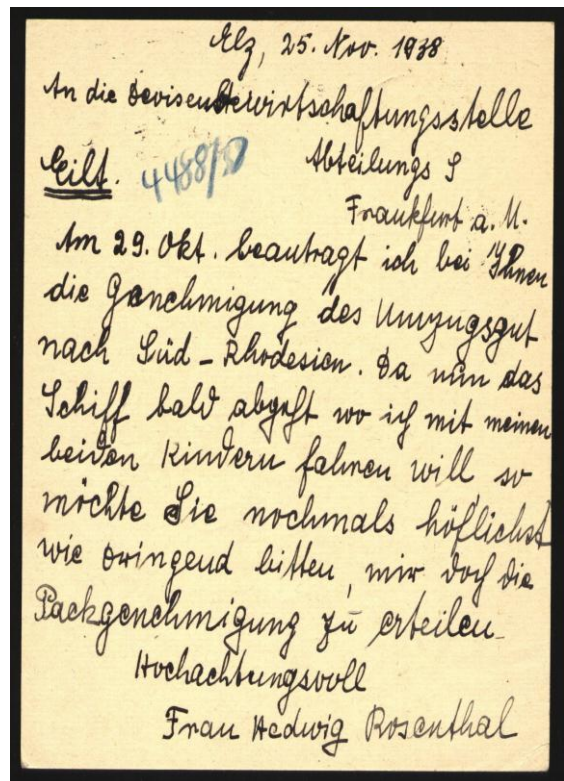 Elz, 25. Nov. 1938
An die Devisenbewirtschaftungsstelle
Eilt. 4488/38 Abteilungs S
Frankfurt a. M.
Am 29. Okt. beautragt ich bei Ihnen
die Genehmigung des Umzugsgut
nach Süd-Rhodesien. Da nun das
Schiff bald abgeht wo ich mit meinen
beiden Kindern fahren will so
möchte Sie nochmals höflichst
wie dringend bitten, mir doch die
Packgenehmigung zu erteilen.
Hochachtungsvoll
Frau Hedwig Rosenthal